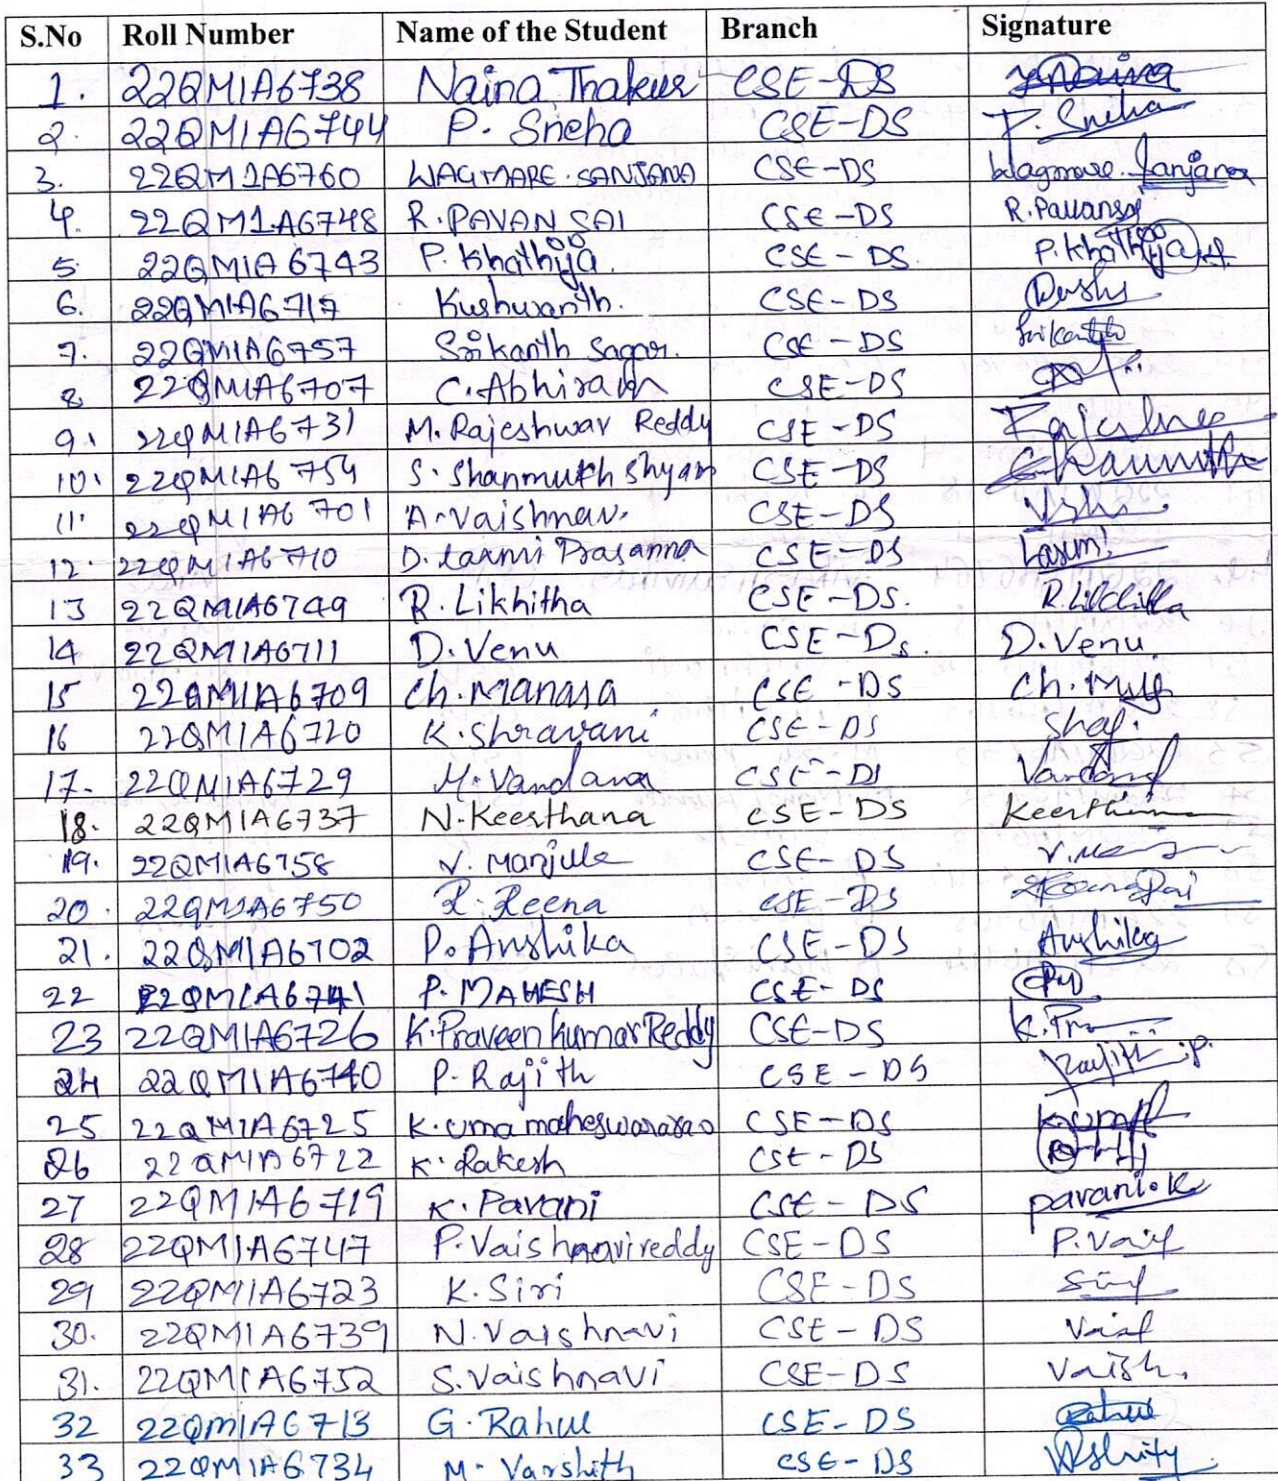 S.No Roll Number Name of the Student Branch Signature
1. 22QM1A6738 Naina Thakur CSE-DS Naina
2. 22QM1A6744 P. Sneha CSE-DS P. Sneha
3. 22QM1A6760 WAGMARE. SANJANA CSE-DS Wagmare. Sanjana
4. 22QM1A6748 R. PAVAN SAI CSE-DS R. Pavansai
5. 22QM1A6743 P. Khathija CSE-DS. P. Khathija
6. 22QM1A6717 Kushwanth. CSE-DS
7. 22QM1A6757 Srikanth Sagar. CSE-DS Srikanth
8 22QM1A6707 C. Abhiram CSE-DS
9. 22QM1A6731 M. Rajeshwar Reddy CSE-DS
10. 22QM1A6754 S. Shanmukh Shyam CSE-DS
11. 22QM1A6701 A. Vaishnav. CSE-DS
12. 22QM1A6710 D. Laxmi Prasanna CSE-DS
13 22QM1A6749 R. Likhitha CSE-DS. R. Likhitha
14 22QM1A6711 D. Venu CSE-Ds. D. Venu
15 22QM1A6709 Ch. Manasa CSE-DS
16 22QM1A6720 K. Shravani CSE-DS
17. 22QM1A6729 M. Vandana CSE-DS
18. 22QM1A6737 N. Keerthana CSE-DS
19. 22QM1A6758 V. Manjula CSE-DS
20. 22QM1A6750 R. Reena CSE-DS
21. 22QM1A6702 P. Anshika CSE-DS Anshika
22 22QM1A6741 P. MAHESH CSE-DS
23 22QM1A6726 K. Praveen kumar Reddy CSE-DS
24 22QM1A6740 P. Rajith CSE-DS
25 22QM1A6725 K. Uma maheswararao CSE-DS
26 22QM1A6722 K. Rakesh CSE-DS
27 22QM1A6719 K. Pavani CSE-DS pavani.K
28 22QM1A6747 P. Vaishnavireddy CSE-DS
29 22QM1A6723 K. Siri CSE-DS
30. 22QM1A6739 N. Vaishnavi CSE-DS
31. 22QM1A6752 S. Vaishnavi CSE-DS Vaish.
32 22QM1A6713 G. Rahul CSE-DS Rahul
33 22QM1A6734 M. Varshith CSE-DS